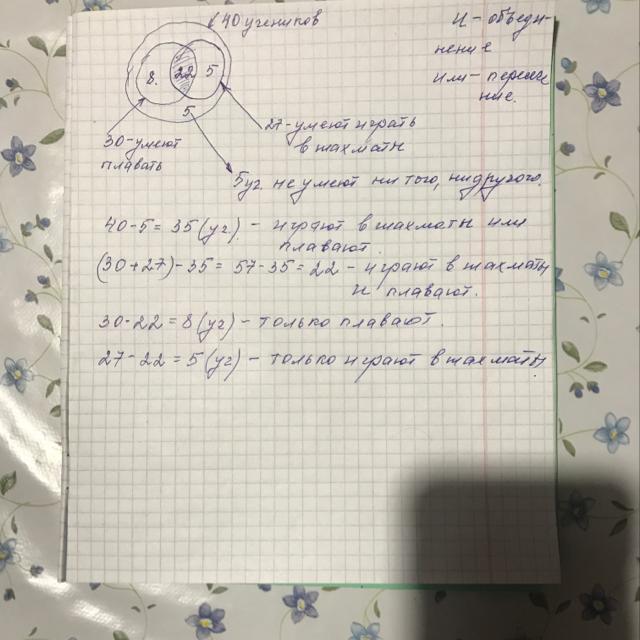 в 40 учеников
И - объеди-
нение
или - пересе
ние.
8. 22 5
5
27 - умеют играть
в шахматы
30 - умеют
плавать
5 уч. не умеют ни того, ни другого.
40 - 5 = 35 (уч) - играют в шахматы или
плавают.
(30 + 27) - 35 = 57 - 35 = 22 - играют в шахматы
и плавают.
30 - 22 = 8 (уч) - только плавают.
27 - 22 = 5 (уч) - только играют в шахматы